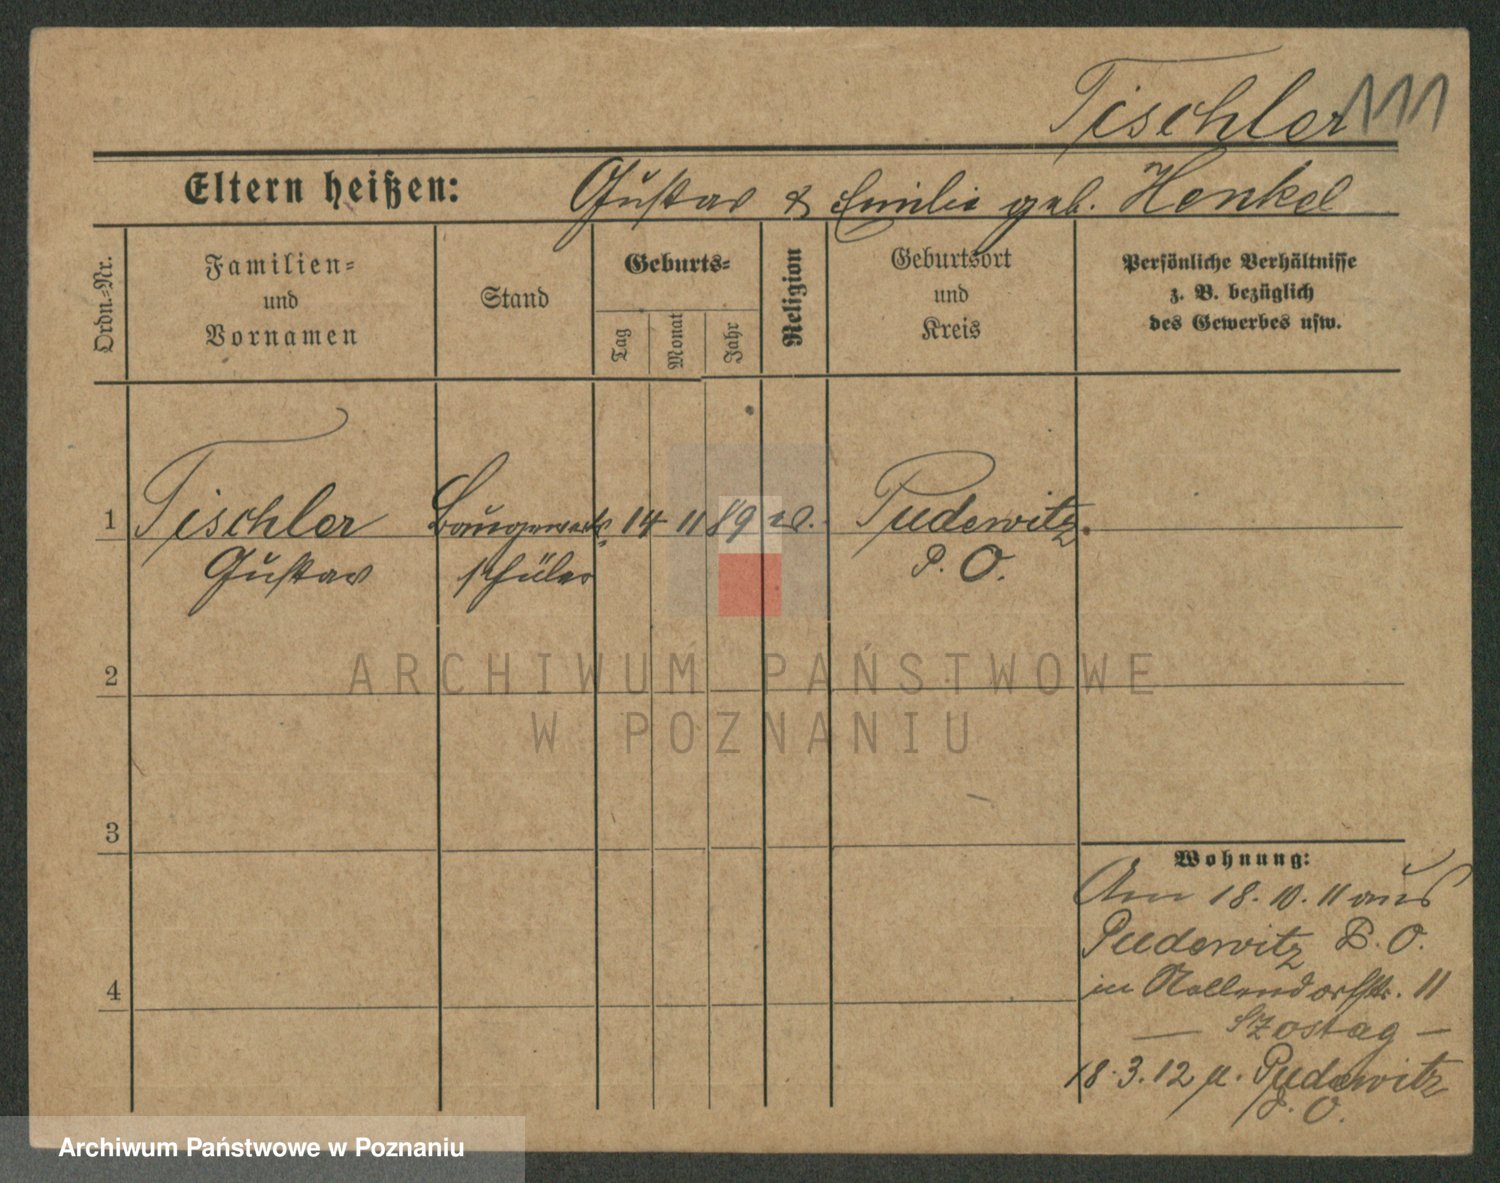 Tischler 111
Eltern heißen: Gustav & Emilie geb. Henkel
Ordn.-Nr.
Familien-
und
Vornamen
Stand
Geburts-
Tag
Monat
Jahr
Religion
Geburtsort
und
Kreis
Persönliche Verhältnisse
z. B. bezüglich
des Gewerbes usw.
1 Tischler Baugewerks 14 11 89 Pudewitz
Gustav schüler P. O.
2
ARCHIWUM PAŃSTWOWE
W POZNANIU
3
Wohnung:
Am 18.10.11 aus
Pudewitz P. O.
in Nollendorfstr. 11
— Szostag —
4
18.3.12 n. Pudewitz
P. O.
Archiwum Państwowe w Poznaniu